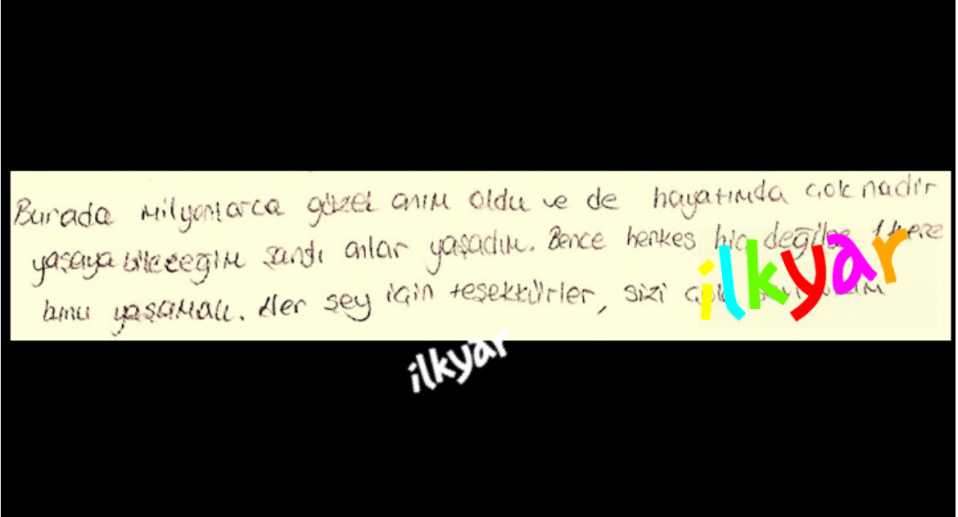 Burada milyonlarca güzel anım oldu ve de hayatımda çok nadir
yaşaya bileceğim anlar yaşadım. Bence herkes hiç değilse 1 kere
bunu yaşamalı. Her sey için teşekkürler, sizi
ilkyar
ilkyar